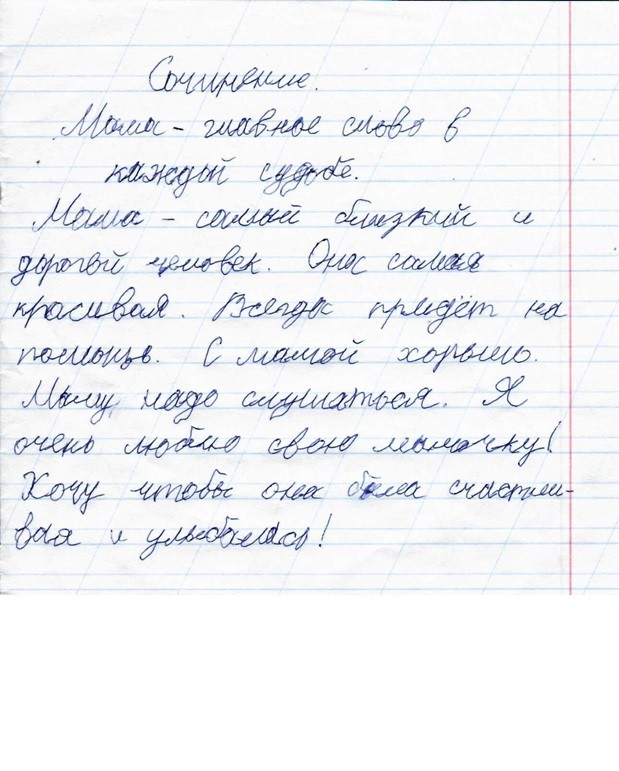 Сочинение.
Мама - главное слово в
каждой судьбе.
Мама - самый близкий и
дорогой человек. Она самая
красивая. Всегда придёт на
помощь. С мамой хорошо.
Маму надо слушаться. Я
очень люблю свою мамочку!
Хочу чтобы она была счастли-
вая и улыбалась!